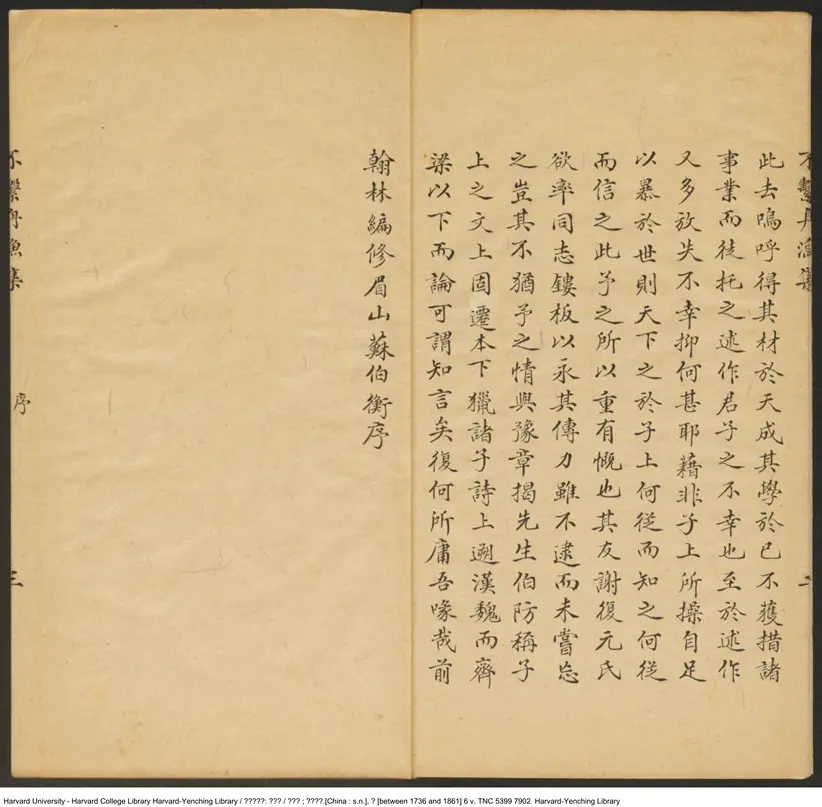 不繫舟漁集
二
此去嗚呼得其材於天成其學於已不獲措諸
事業而徒托之述作君子之不幸也至於述作
又多放失不幸抑何甚耶藉非子上所操自足
以暴於世則天下之於子上何從而知之何從
而信之此予之所以重有慨也其友謝復元氏
欲率同志鏤板以永其傳力雖不逮而未嘗忘
之豈其不猶予之情與豫章揭先生伯防稱子
上之文上固遷本下獵諸子詩上遡漢魏而齊
梁以下而論可謂知言矣復何所庸吾喙哉前
翰林編修眉山蘇伯衡序
不繫舟漁集
序
三
Harvard University - Harvard College Library Harvard-Yenching Library / ?????: ??? / ??? ; ????.[China : s.n.], ? [between 1736 and 1861] 6 v. TNC 5399 7902 Harvard-Yenching Library